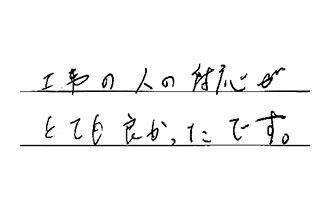 工事の人の対応が
とても良かったです。